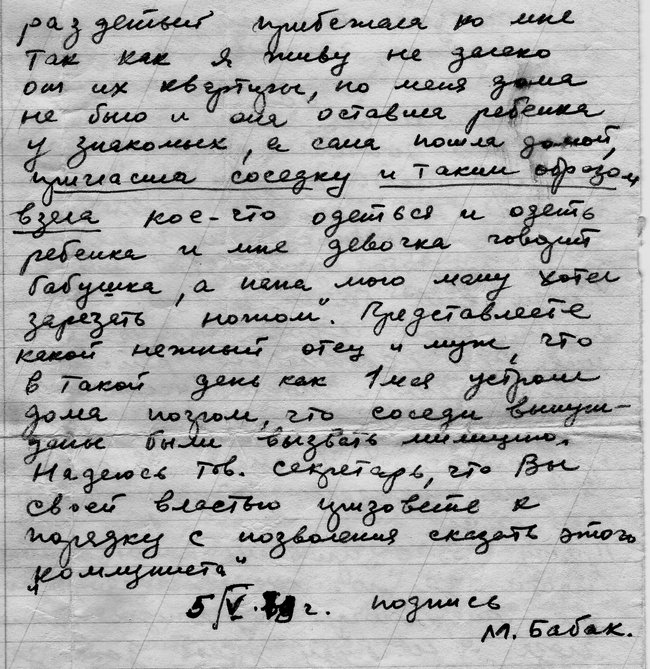 раздетый прибежала ко мне
так как я живу не далеко
от их квартиры, но меня дома
не было и она оставила ребенка
у знакомых, а сама пошла домой,
пригласила соседку и таким образом
взяла кое-что одеться и одеть
ребенка и мне девочка говорит
бабушка, а папа мою маму хотел
зарезать ножом". Представляете
какой нежный отец и муж, что
в такой день как 1 мая устроил
дома погром, что соседи вынуж-
дены были вызвать милицию.
Надеюсь тов. секретарь, что Вы
своей властью призовете к
порядку с позволения сказать этого
"коммуниста"
5/V. г. подпись
М. Бабак.